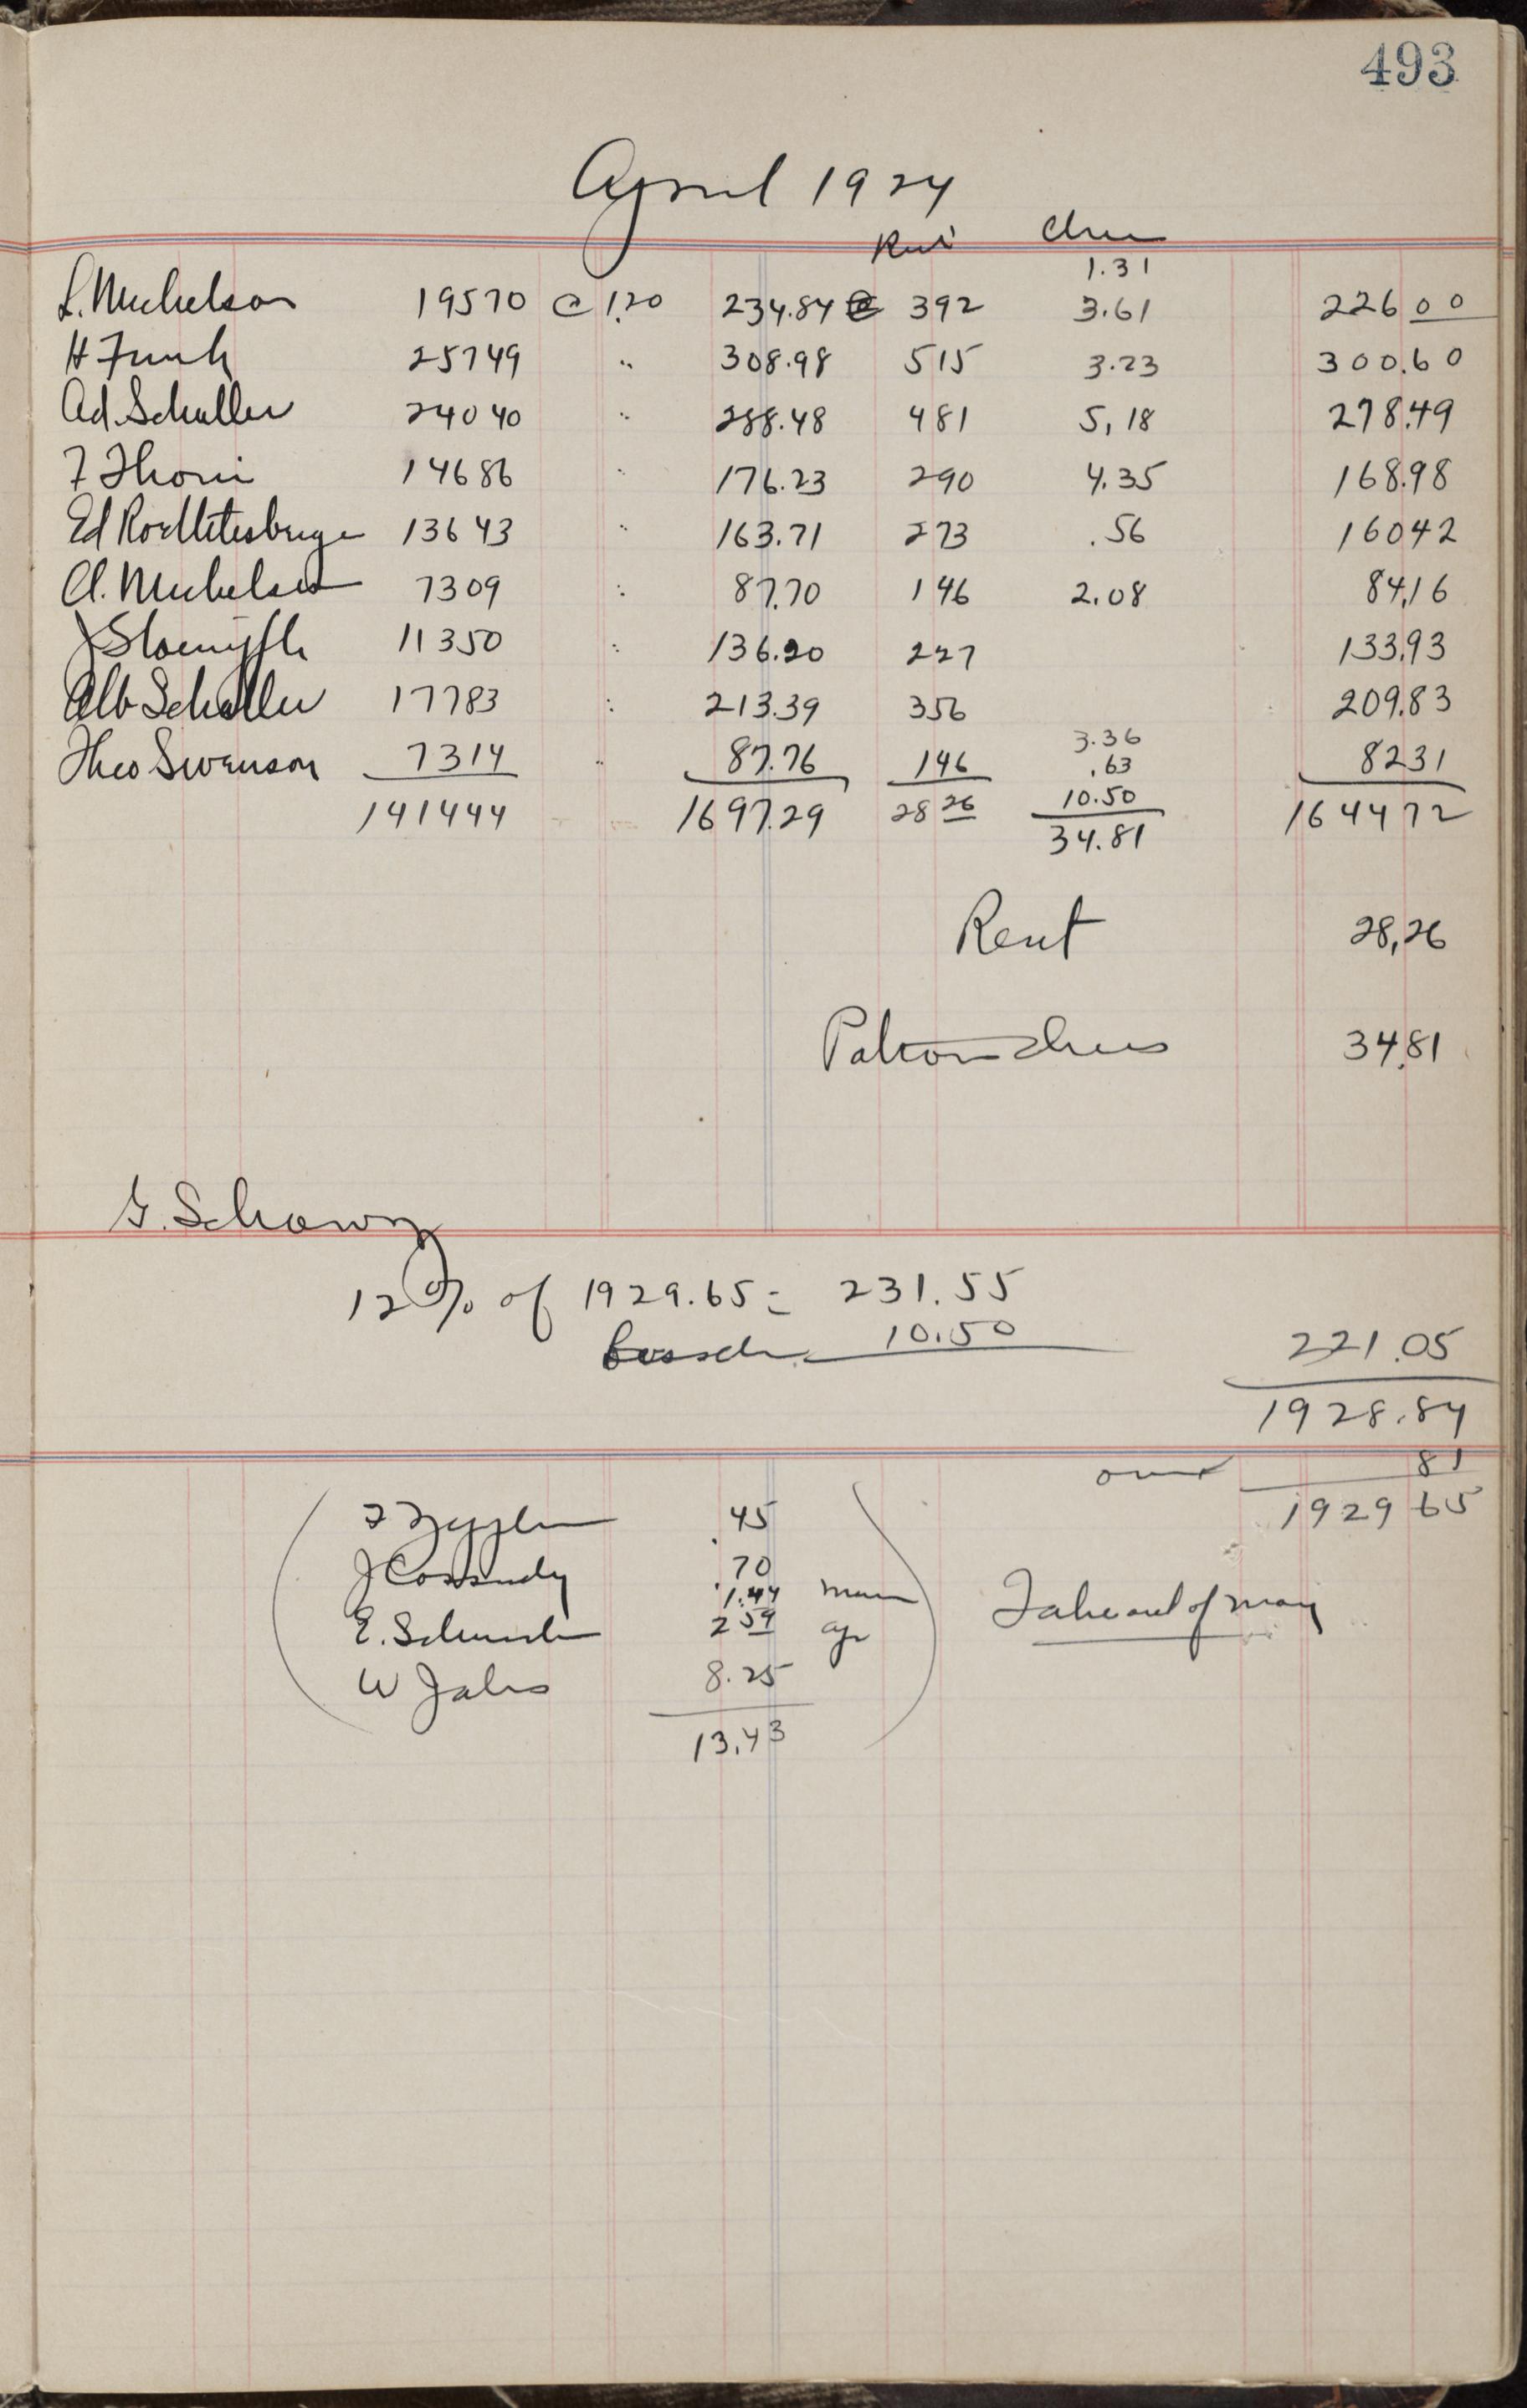 493
April 1924
Rent Chee
1.31
L. Michelson 19570 @ 1.20 234.84 392 3.61 226 00
H Funk 25749 " 308.98 515 3.23 300.60
Ad. Schaller 24040 " 288.48 481 5,18 278.49
F Thoni 14686 " 176.23 290 4.35 168.98
Ed Roethlisberge 13643 " 163.71 273 .56 16042
Cl. Michelson 7309 " 87.70 146 2.08 84,16
J 11350 " 136.20 227 133.93
Alb Schaller 17783 " 213.39 356 209.83
3.36
Theo Swenson 7314 " 87.76 146 .63 8231
10.50
141444 1697.29 28 26 34.81 164472
Rent 28,26
Patron chees 34.81
G. Schowz
12 % of 1929.65 = 231.55
10.50
221.05
1928.84
over 81
1929 65
.45
J Cassidy .70
1.44 mar
E. 2 59 ap
W 8.25
13.43
Take out of may